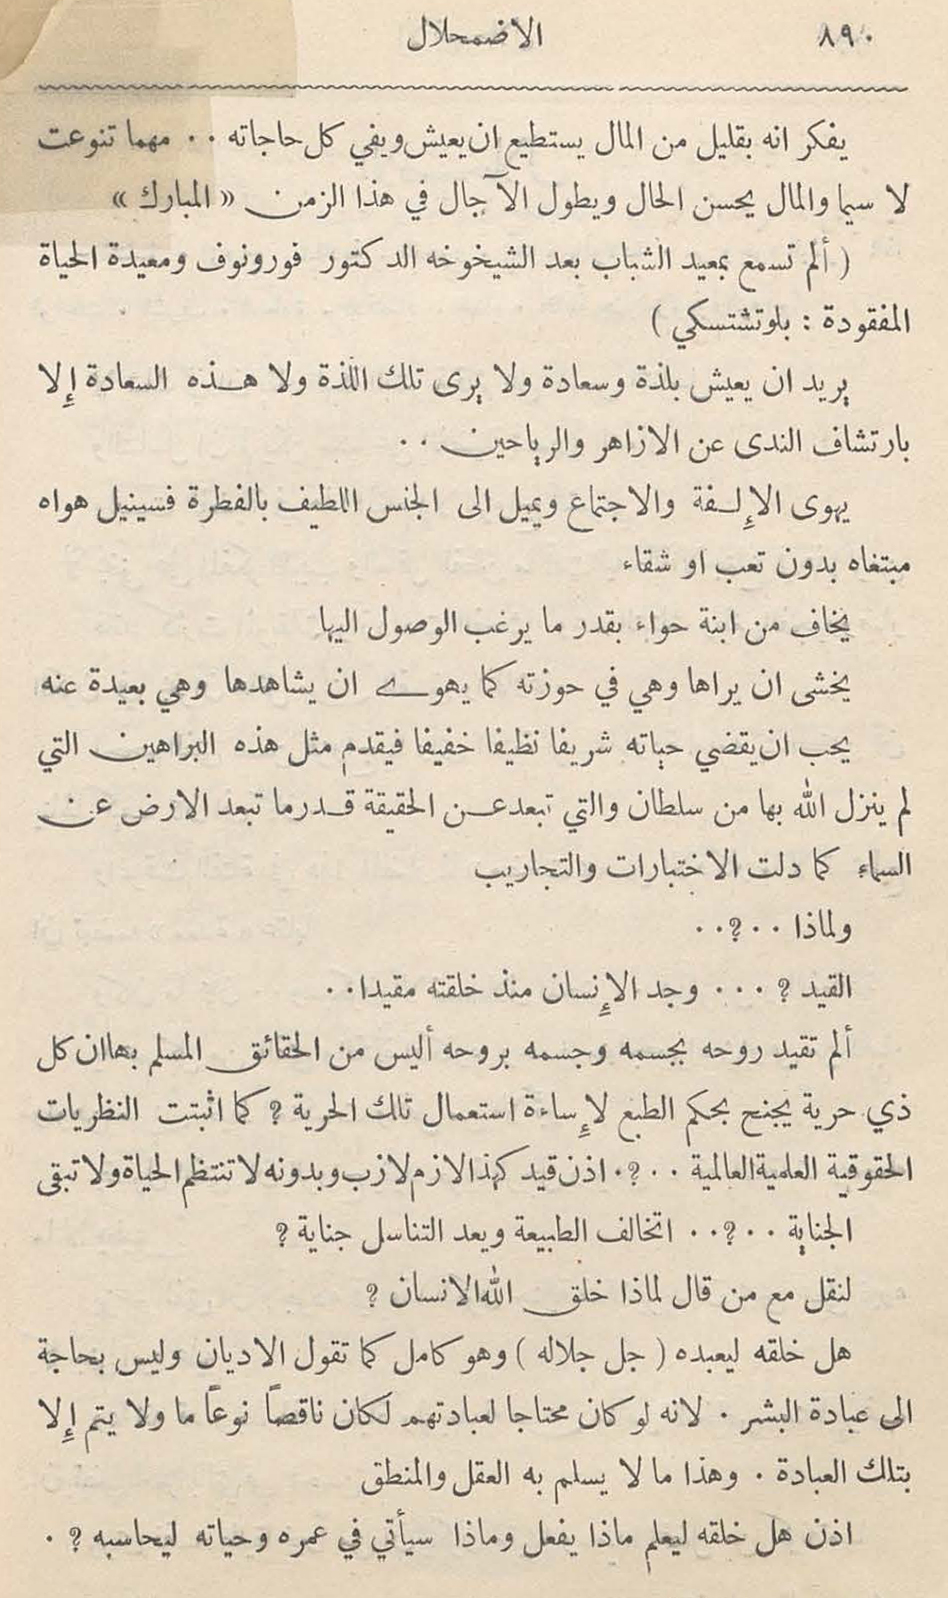 ٨٩٠
الاضمحلال
يفكر انه بقليل من المال يستطيع ان يعيش ويفي كل حاجاته ٠٠ مهما تنوعت
لا سيما والمال يحسن الحال ويطول الآجال في هذا الزمن « المبارك »
( ألم تسمع بمعيد الشباب بعد الشيخوخه الدكتور فورونوف ومعيدة الحياة
المفقودة : بلوتشتسكي )
يريد ان يعيش بلذة وسعادة ولا يرى تلك اللذة ولا هذه السعادة إلا
بارتشاف الندى عن الازاهر والرياحين ٠٠
يهوى الإلفة والاجتماع ويميل الى الجنس اللطيف بالفطرة فسينيل هواه
مبتغاه بدون تعب او شقاء
يخاف من ابنة حواء بقدر ما يرغب الوصول اليها
يخشى ان يراها وهي في حوزته كما يهوى ان يشاهدها وهي بعيدة عنه
يحب ان يقضي حياته شريفا نظيفا خفيفا فيقدم مثل هذه البراهين التي
لم ينزل الله بها من سلطان والتي تبعد عن الحقيقة قدر ما تبعد الارض عن
السماء كما دلت الاختبارات والتجاريب
ولماذا ٠٠؟٠٠
القيد ؟ ٠٠٠ وجد الإنسان منذ خلقته مقيدا ٠٠
ألم تقيد روحه بجسمه وجسمه بروحه أليس من الحقائق المسلم بها ان كل
ذي حرية يجنح بحكم الطبع لإساءة استعمال تلك الحرية ؟ كما اثبتت النظريات
الحقوقية العلمية العالمية ٠٠؟٠ اذن قيد كهذا لازم لازب وبدونه لا تنتظم الحياة ولا تبقى
الجناية ٠٠؟٠٠ اتخالف الطبيعة ويعد التناسل جناية ؟
لنقل مع من قال لماذا خلق الله الانسان ؟
هل خلقه ليعبده ( جل جلاله ) وهو كامل كما تقول الاديان وليس بحاجة
الى عبادة البشر ٠ لانه لو كان محتاجا لعبادتهم لكان ناقصاً نوعاً ما ولا يتم إلا
بتلك العبادة ٠ وهذا ما لا يسلم به العقل والمنطق
اذن هل خلقه ليعلم ماذا يفعل وماذا سيأتي في عمره وحياته ليحاسبه ؟ ٠